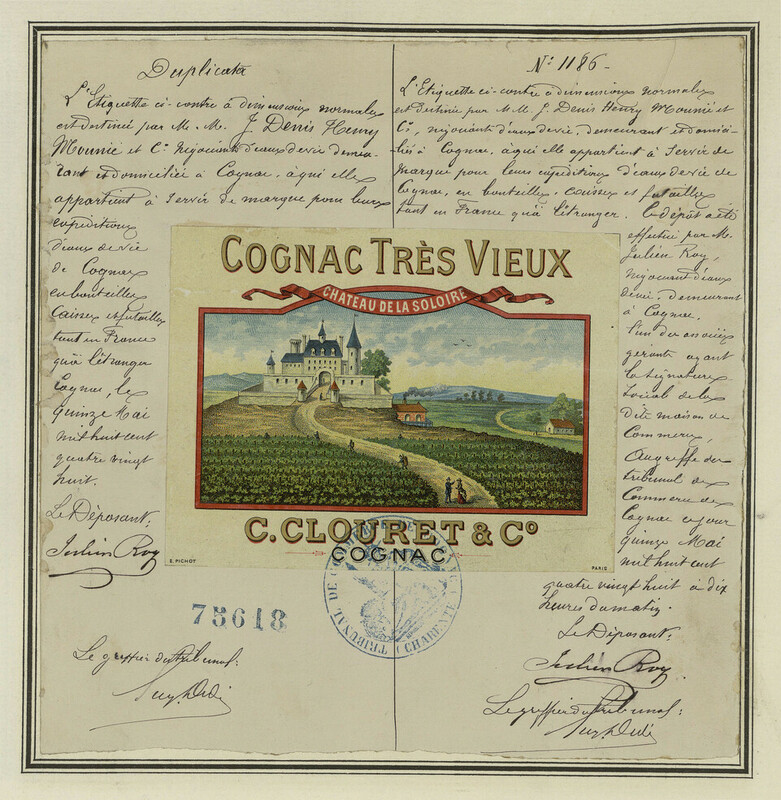 Duplicata
L'Etiquette ci-contre à dimensions normales
est destinée par M. M. J. Denis Henry
Mounié et Cie Négociants d'eaux de vie demeu-
rant et domiciliée à Cognac, à qui elle
appartient à servir de marque pour leurs
expéditions
d'eaux de vie
de Cognac
en bouteilles
caisses et futailles
tant en France
qu'à l'étranger
Cognac, le
quinze Mai
mil huit cent
quatre vingt
huit.
Le Déposant:
Julien Roy
75618
Le greffier du tribunal:
N° 1186 -
L'Etiquette ci-contre à dimensions normales
est destinée par M M. J. Denis Henry Mounié et
Cie, négociants d'eaux de vie, demeurant et domici-
liés à Cognac, à qui elle appartient à servir de
marque pour leurs expéditions d'eaux de vie de
Cognac, en bouteilles, caisses et futailles
tant en France qu'à l'étranger. Le dépôt a été
effectué par M.
Julien Roy,
négociant d'eaux
de vie, demeurant
à Cognac,
l'un des associés
gérants ayant
la signature
sociale de la
dite maison de
Commerce,
Au greffe du
tribunal de
Commerce de
Cognac ce jour
quinze Mai
mil huit cent
quatre vingt huit à dix
heures du matin.
Le Déposant:
Julien Roy
Le greffier du tribunal:
COGNAC TRÈS VIEUX
CHATEAU DE LA SOLOIRE
C. CLOURET & Co
COGNAC
E. PICHOT
PARIS
TRIBUNAL DE COMMERCE DE COGNAC
CHARENTE